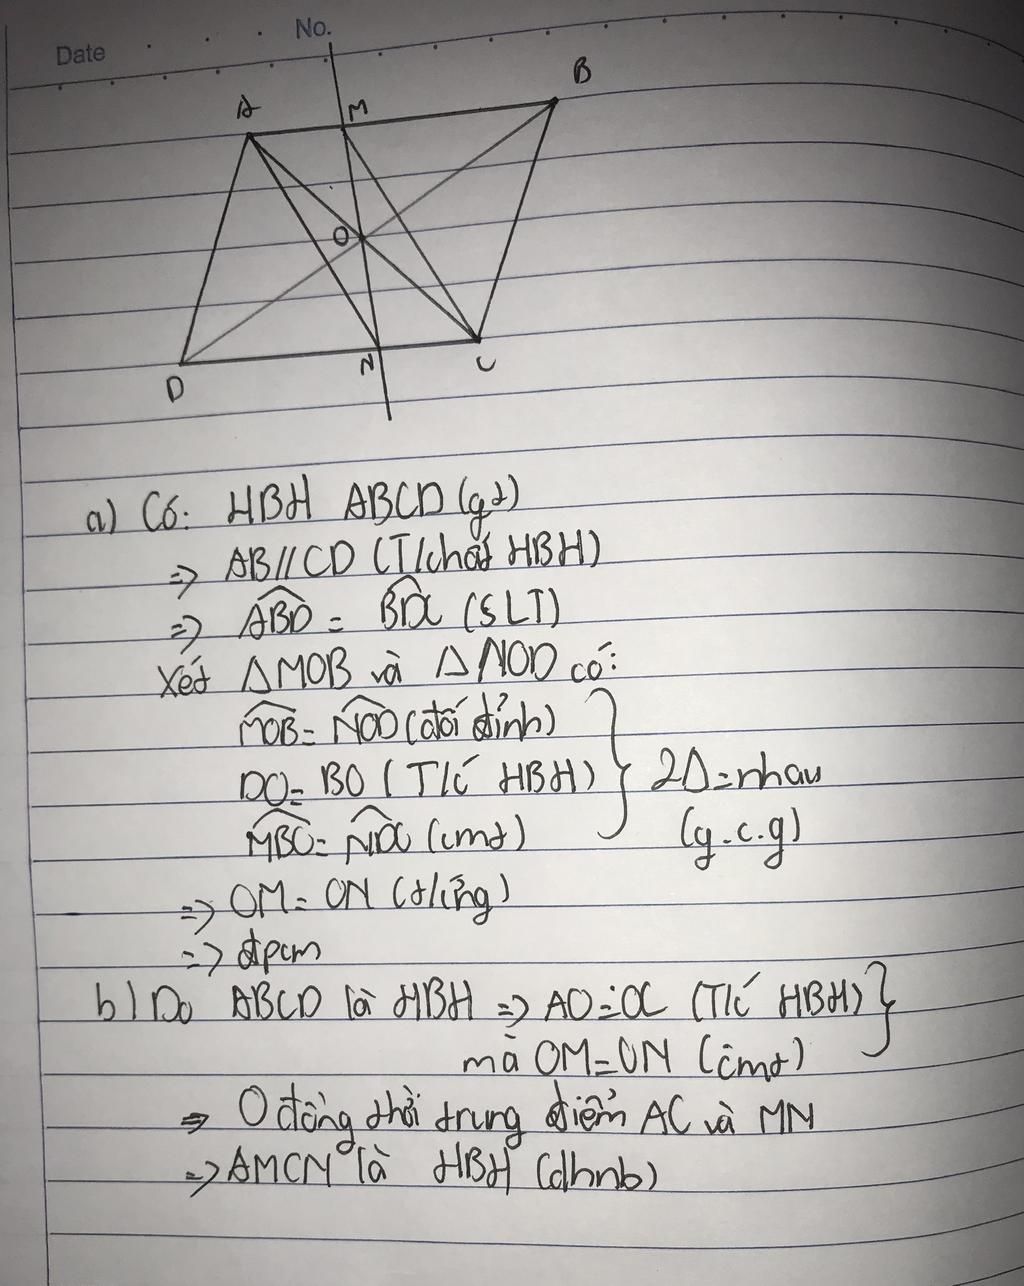 Date
No.
A
M
B
O
D
N
C
a) Có: HBH ABCD (gt)
=> AB//CD (T/chất HBH)
=> ABD = BDC (SLT)
Xét ΔMOB và ΔNOD có:
MOB = NOD (đối đỉnh)
DO = BO (T/c HBH)
MBO = NDO (cmt)
2Δ = nhau
(g.c.g)
=> OM = ON (t/ứng)
=> đpcm
b) Do ABCD là HBH => AO = OC (T/c HBH)
mà OM = ON (cmt)
=> O đồng thời trung điểm AC và MN
=> AMCN là HBH (dhnb)